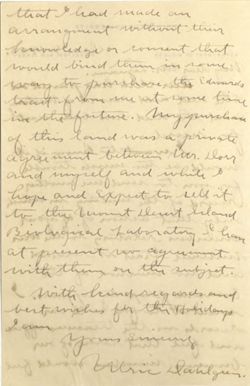 that I had made an
arrangment without their
knowledge or consent that
would bind them in some
way to purchase the Edwards
tract from me at some time
in the future. My purchase
of this land was a private
agreement between Mr. Dorr
and myself and while I
hope and expect to sell it
to the Mount Desert Island
Biological Laboratory I have
at present no agreement
with them on this subject.
With kind regards and
best wishes for the Holidays
I am
Yours sincerely
Ulric Dahlgren.